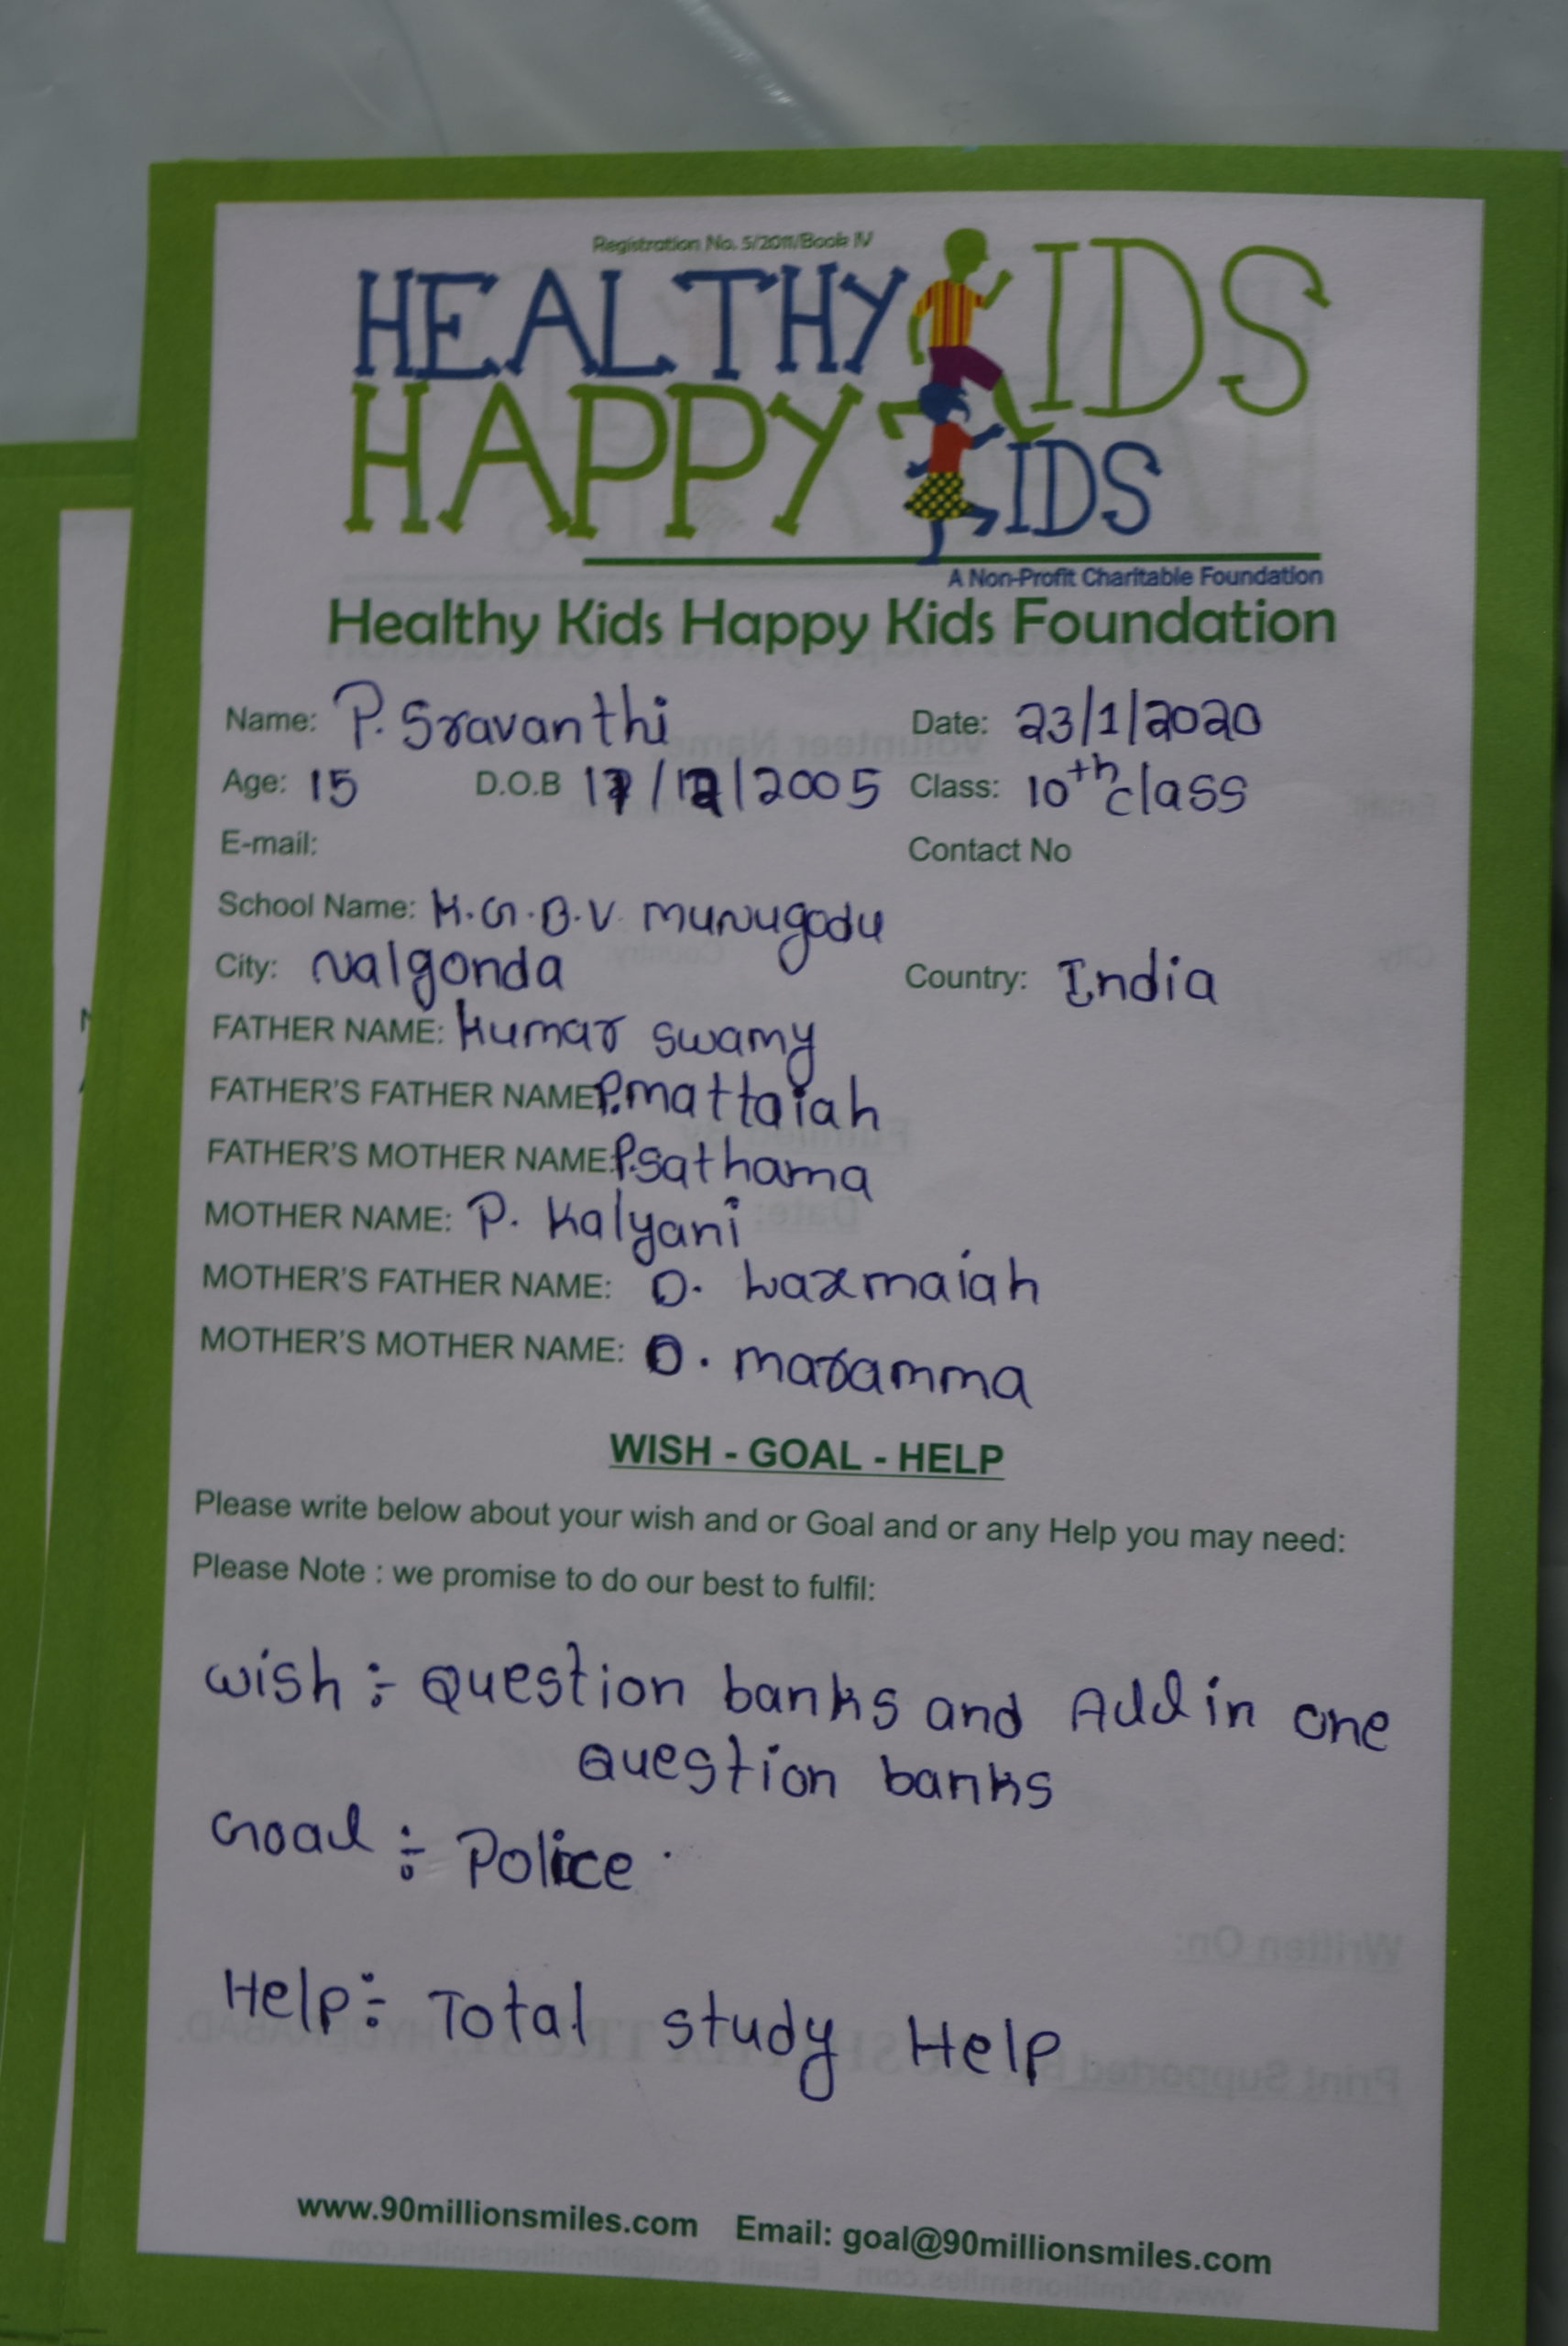 Registration No. 5/2011/Book IV
HEALTHY KIDS
HAPPY KIDS
A Non-Profit Charitable Foundation
Healthy Kids Happy Kids Foundation
Name: P. Sravanthi Date: 23/1/2020
Age: 15 D.O.B /2005 Class: 10th class
E-mail: Contact No
School Name: K.G.B.V. munugodu
City: Nalgonda Country: India
FATHER NAME: Kumar swamy
FATHER'S FATHER NAME: P.mattaiah
FATHER'S MOTHER NAME: P.sathama
MOTHER NAME: P. Kalyani
MOTHER'S FATHER NAME: D. Laxmaiah
MOTHER'S MOTHER NAME: D. maramma
WISH - GOAL - HELP
Please write below about your wish and or Goal and or any Help you may need:
Please Note : we promise to do our best to fulfil:
wish :- Question banks and Add in one
question banks
Goal :- Police .
Help :- Total study Help
www.90millionsmiles.com Email: goal@90millionsmiles.com